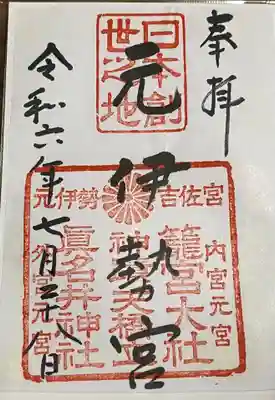 奉拝
日本創
世之地
元伊勢宮
元伊勢 吉佐宮
内宮元宮
籠宮大社
天橋立
眞名井神社
元宮
令和六年七月二十八日